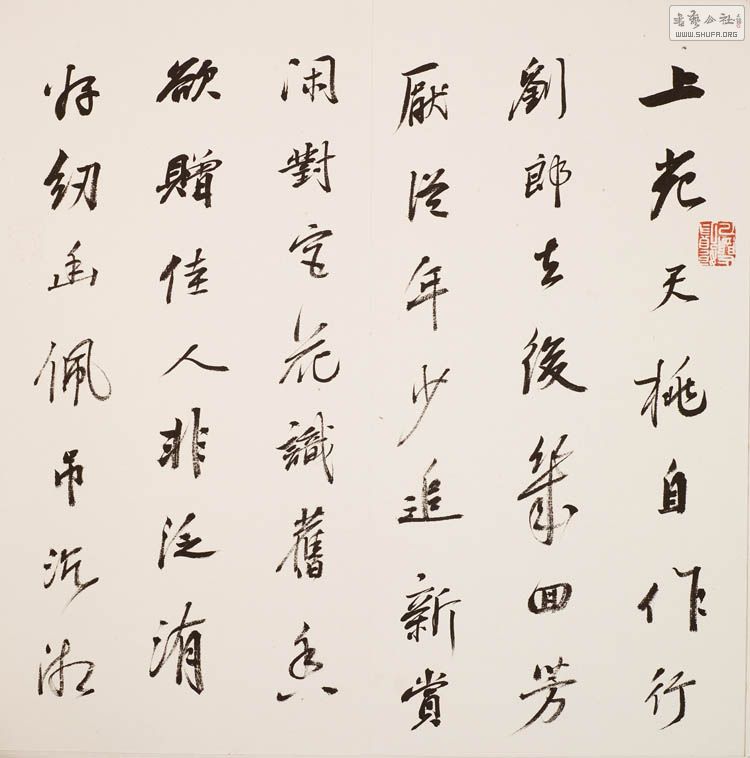 上苑夭桃自作行
劉郎去後幾回芳
厭從年少追新賞
閑對宮花識舊香
欲贈佳人非泛洧
好紉幽佩吊沉湘
書藝公社
WWW.SHUFA.ORG